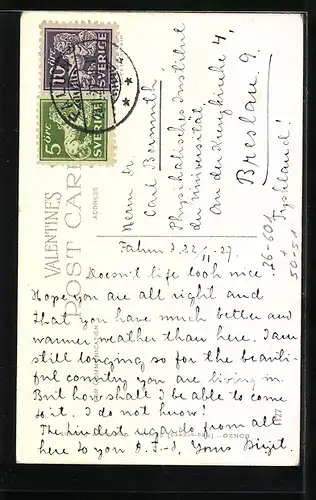 10 ÖRE
SVERIGE
5 öre
SVERIGE
VALENTINES
POST CARD
ADDRESS
Herrn Dr.
Carl
Physikalisches Institut
der Universität
An der Kreuzkirche 4,
Breslau 9.
Tyskland!
26-601
50-51
Falun d. 22/11-27.
Doesn't life look nice.
Hope you are all right and
that you have much better and
warmer weather than here. I am
still longing so for the beauti-
ful country you are living in.
But how shall I be able to come
to it. I do not know!
The kindest regards from all
here to you Yours Birgit.
BONZO